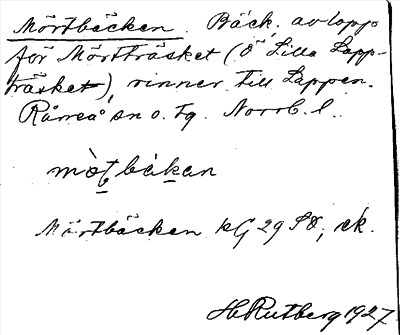 Mörtbäcken. Bäck, avlopp
för Mörtträsket (o Lilla Lapp-
träsket), rinner till Lappon.
Råneå sn o. tg. Norrb. l.
mö̀t bäkan
Mörtbäcken kG 29 SO, ek.
H Rutberg 1927